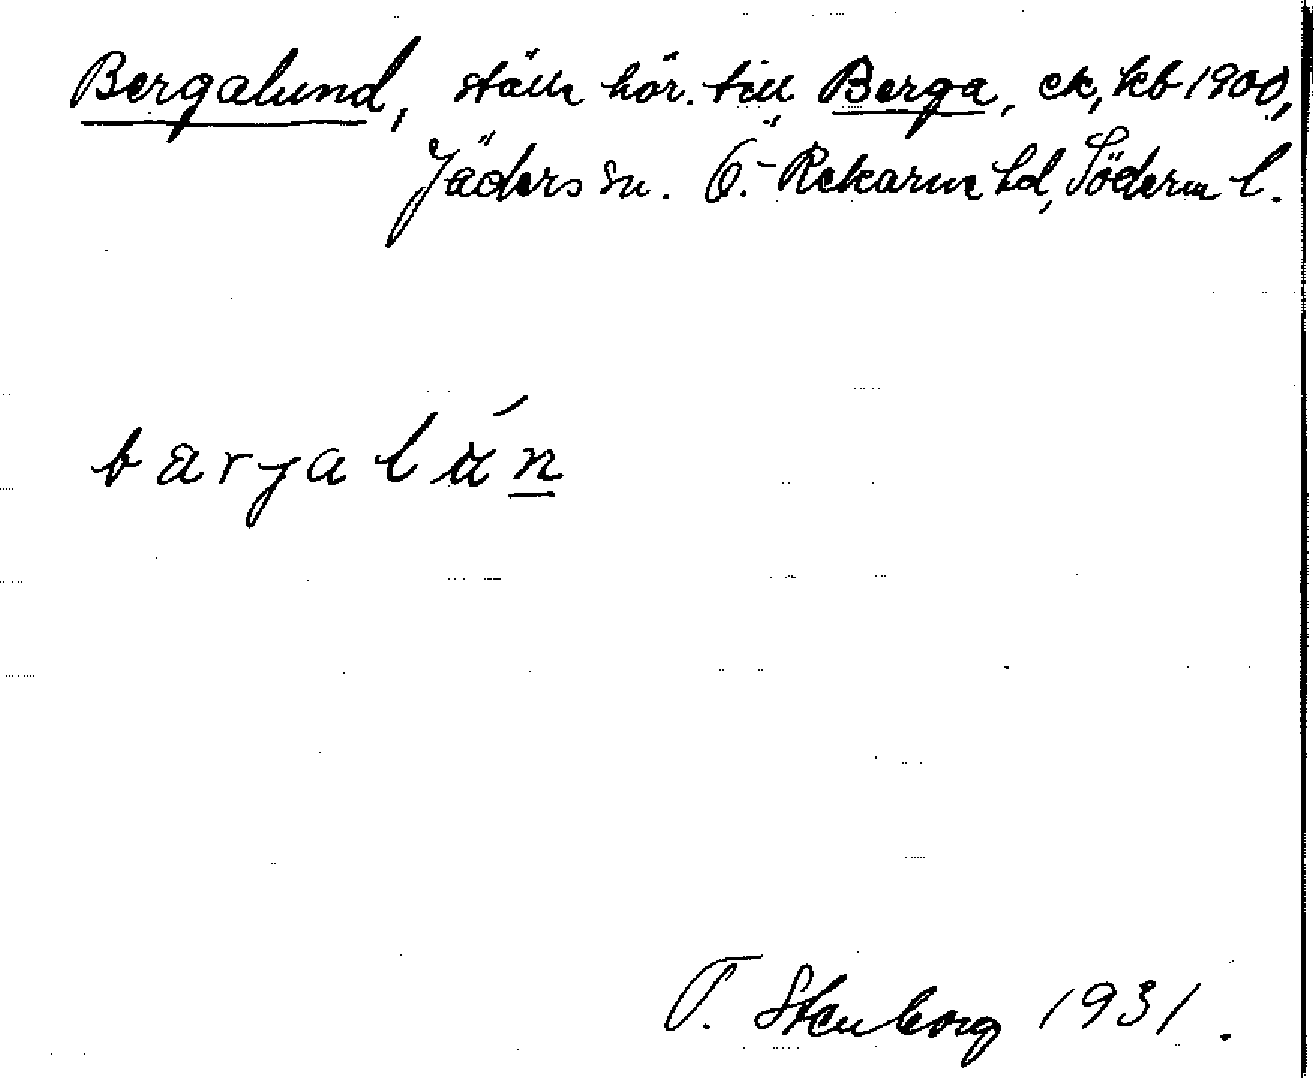 Bergalund, ställe hör. till Berga, ek, kb 1900,
Jäders sn. Ö.-Rekarne hd, Söderm l.
bærjalún
T. Stenborg 1931.